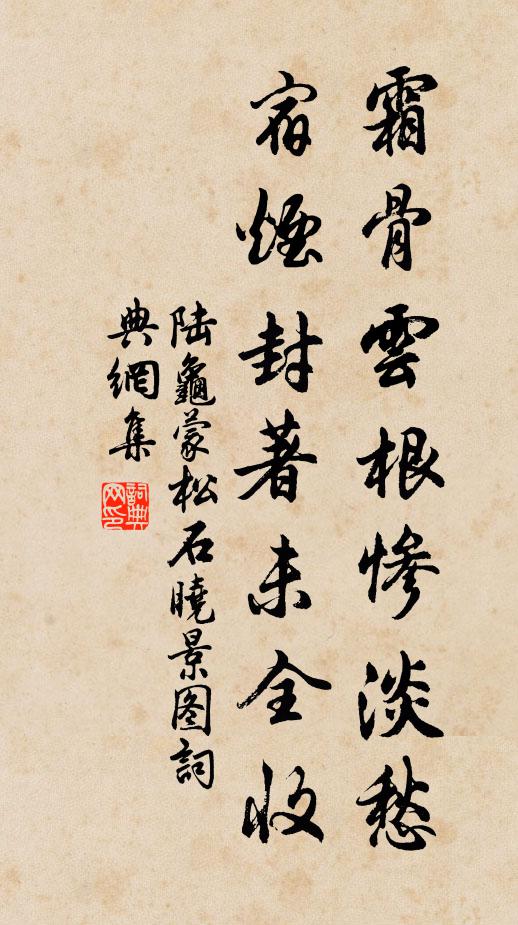 霜骨雲根慘淡愁
宿煙封著未全收
陸龜蒙松石曉景图詞
典網集
詞典网印